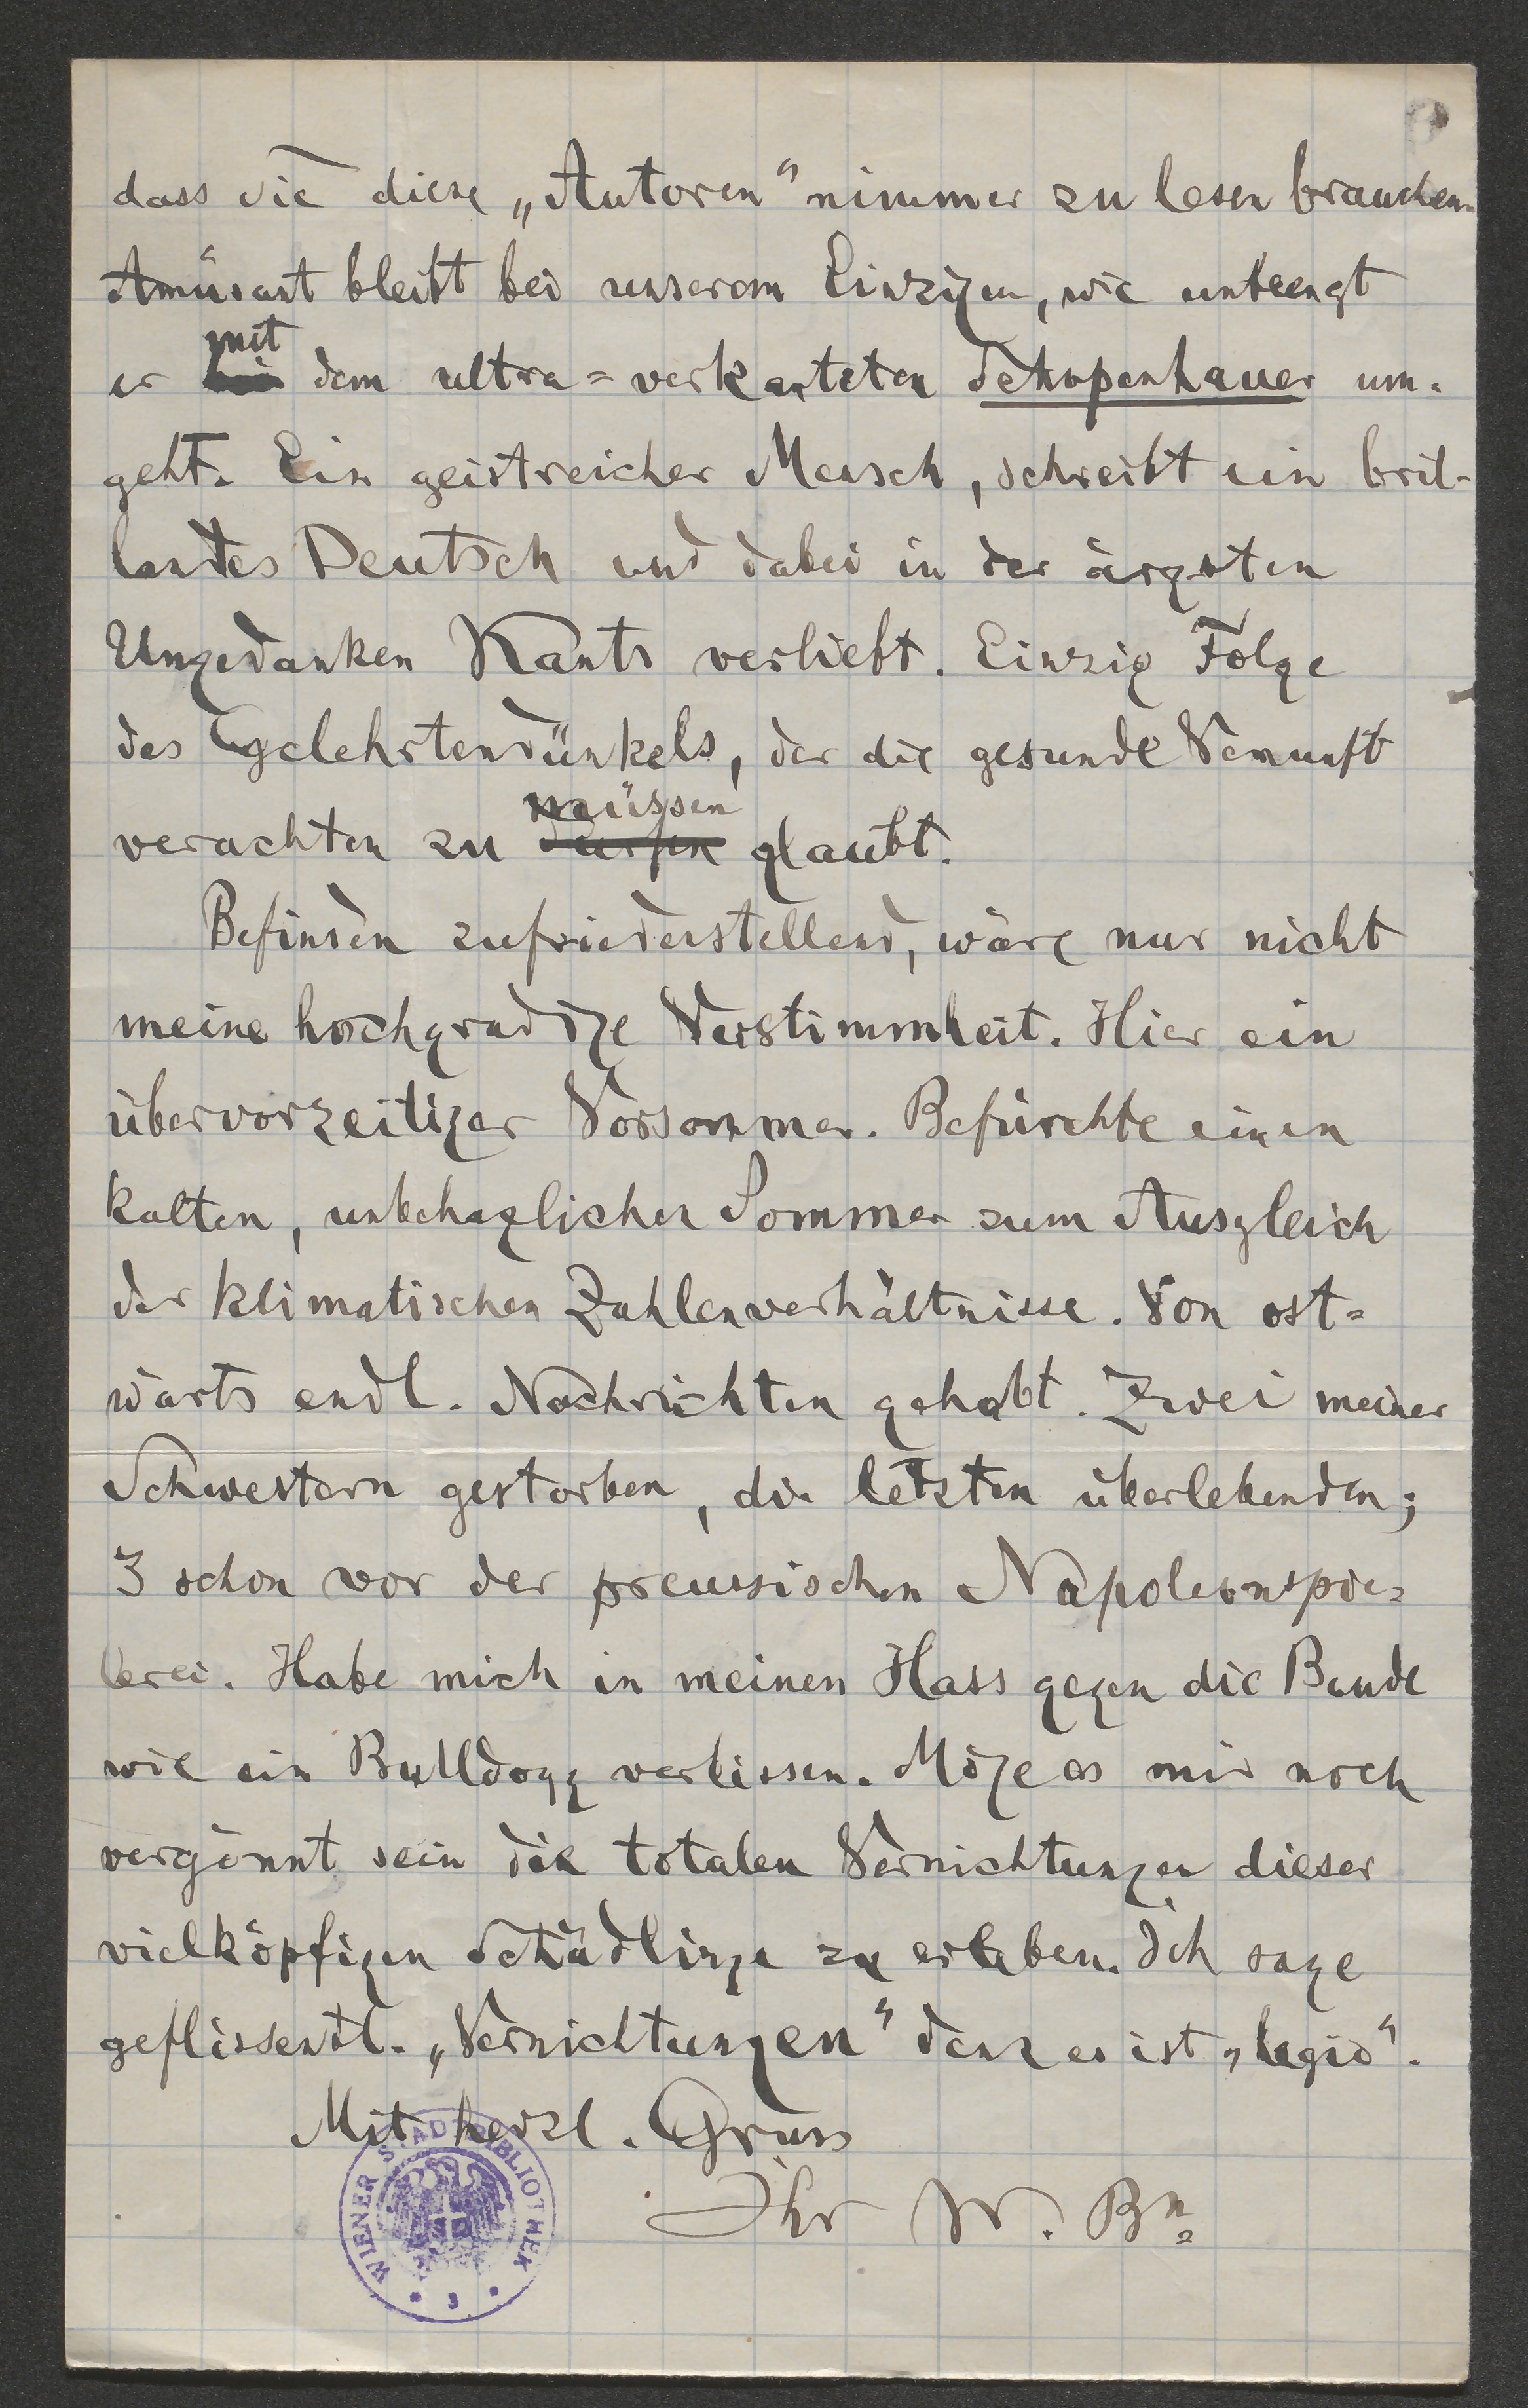 dass sie diese „Autoren" nimmer zu lesen brauchen.
Amüsant bleibt bei unserem Einzigen, wie unbeengt
mit
er bei dem ultra=verkanteten Schopenhauer um-
geht. Ein geistreicher Mensch, schreibt ein bril-
lantes Deutsch und dabei in der ärgsten
Ungedanken Kants verliebt. Einzig Folge
des Gelehrtendünkels, der die gesunde Vernunft
müssen
verachten zu dürfen glaubt.
Befinden zufriedenstellend, wäre nur nicht
meine hochgradige Verstimmheit. Hier ein
übervorzeitiger Vorsommer. Befürchte einen
kalten, unbehaglichen Sommer zum Ausgleich
der klimatischen Zahlenverhältnisse. Von ost=
wärts endl. Nachrichten gehabt. Zwei meiner
Schwestern gestorben, die letzten überlebenden;
3 schon vor der preussischen Napoleonspie=
lerei. Habe mich in meinen Hass gegen die Bande
wie ein Bulldogg verbissen. Möge es mir noch
vergönnt sein die totalen Vernichtungen dieser
vielköpfigen Schädlinge zu erleben. Ich sage
geflissentl. „Vernichtungen" denn es ist „legio".
Mit herzl. Gruss
Ihr W. Bn
WIENER STADTBIBLIOTHEK